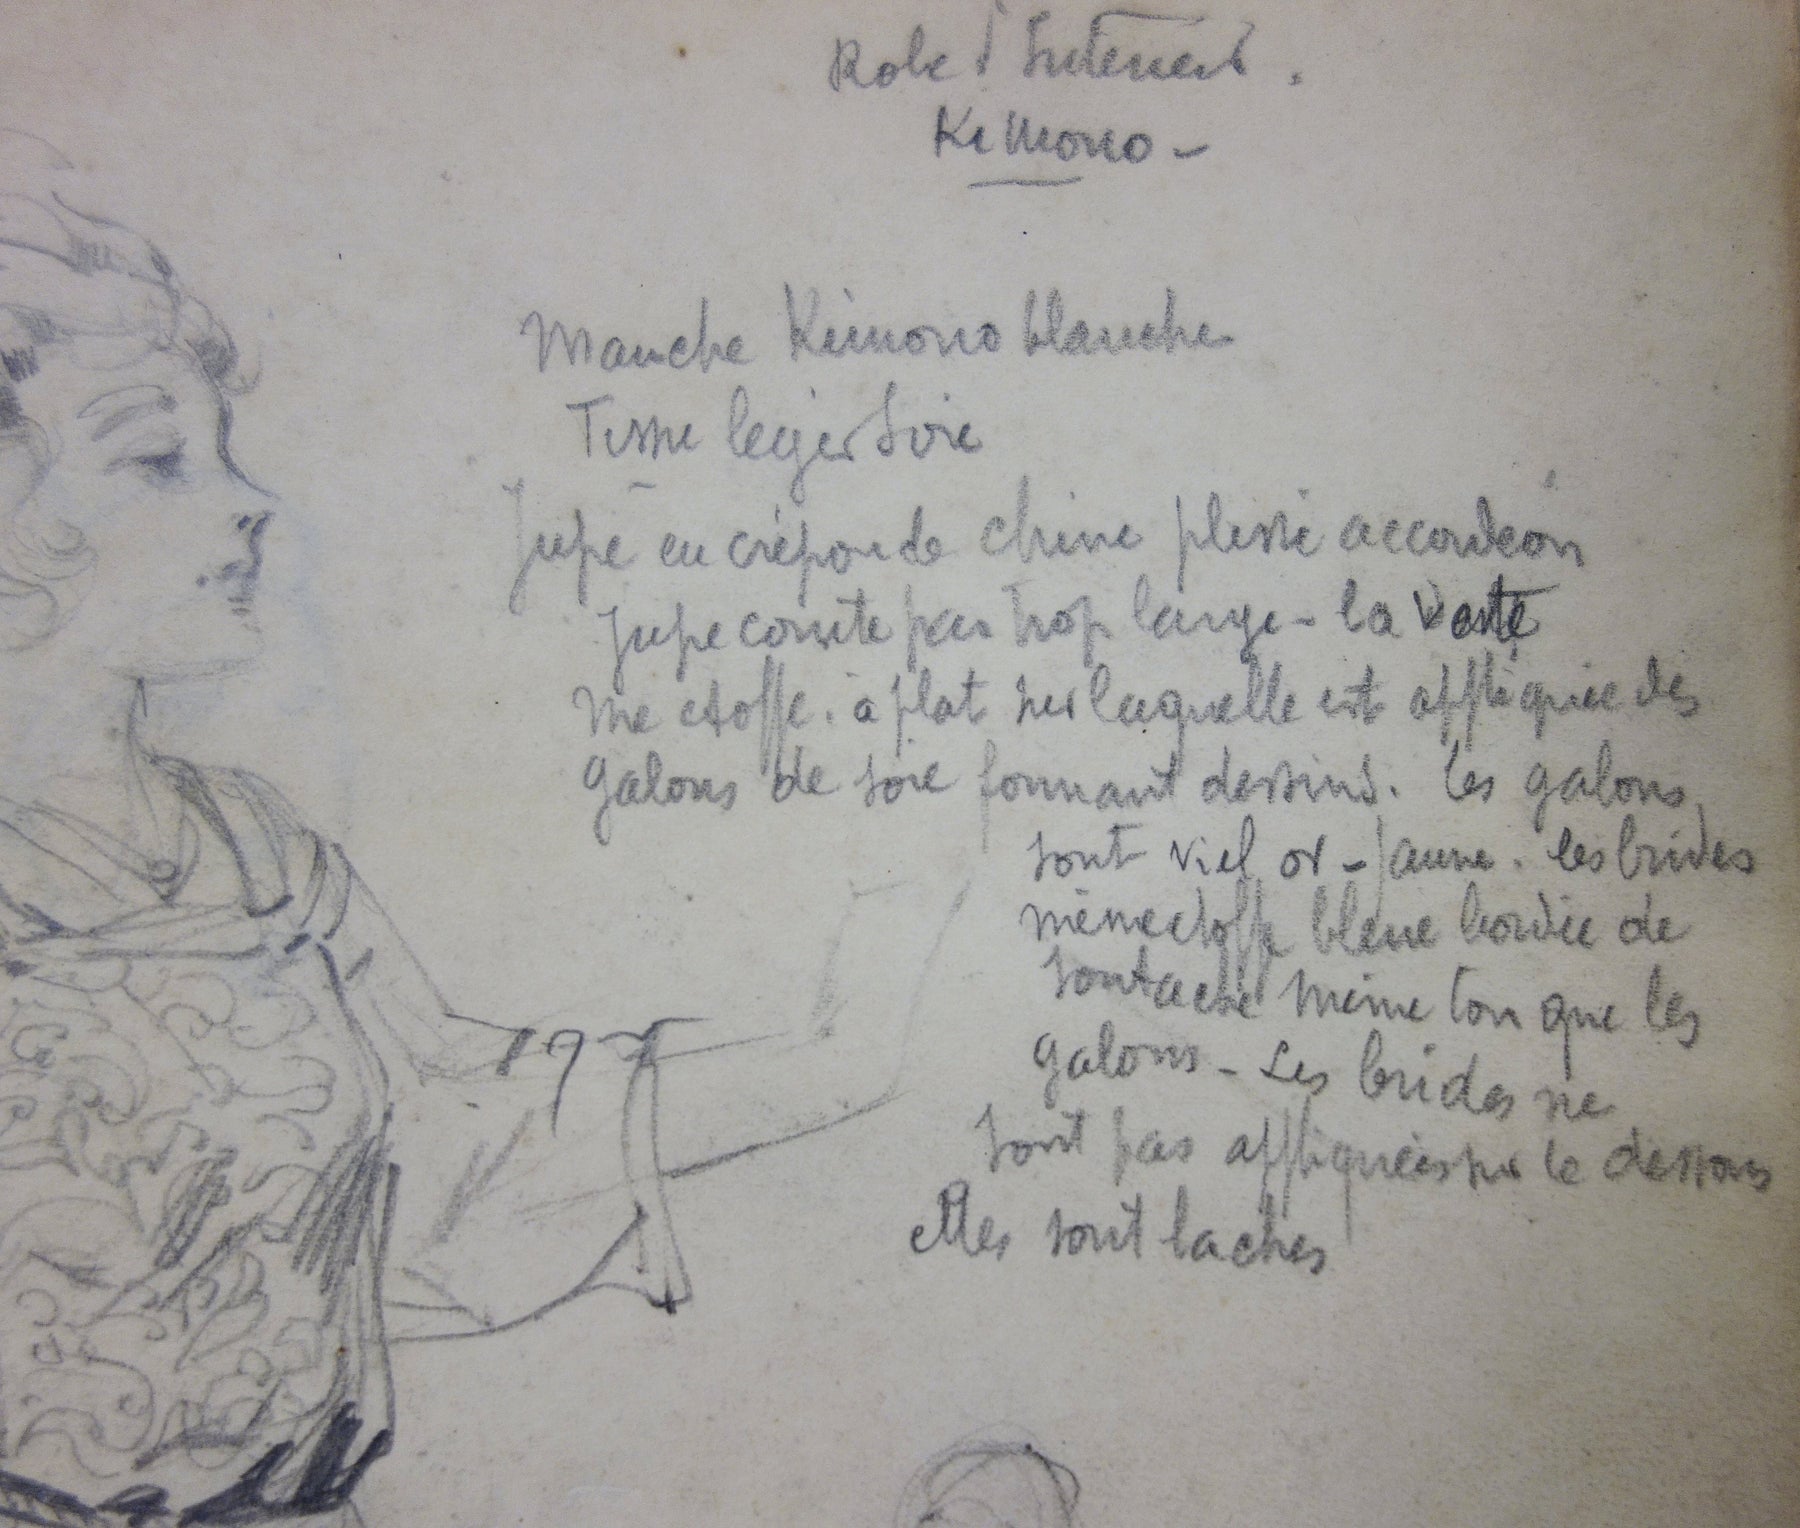 Robe d'Interieur.
Kimono -
Manche Kimono blanche
Tissu leger Soie
Jupe en crépon de chine plissé accordéon
Jupe courte pas trop large - la veste
me etoffe. à plat sur laquelle est appliquée des
galons de soie formant dessins. les galons
sont viel or - jaune. les brides
même etoffe bleue bordée de
soutache même ton que les
galons - Les brides ne
sont pas appliquées sur le dessous
elles sont laches